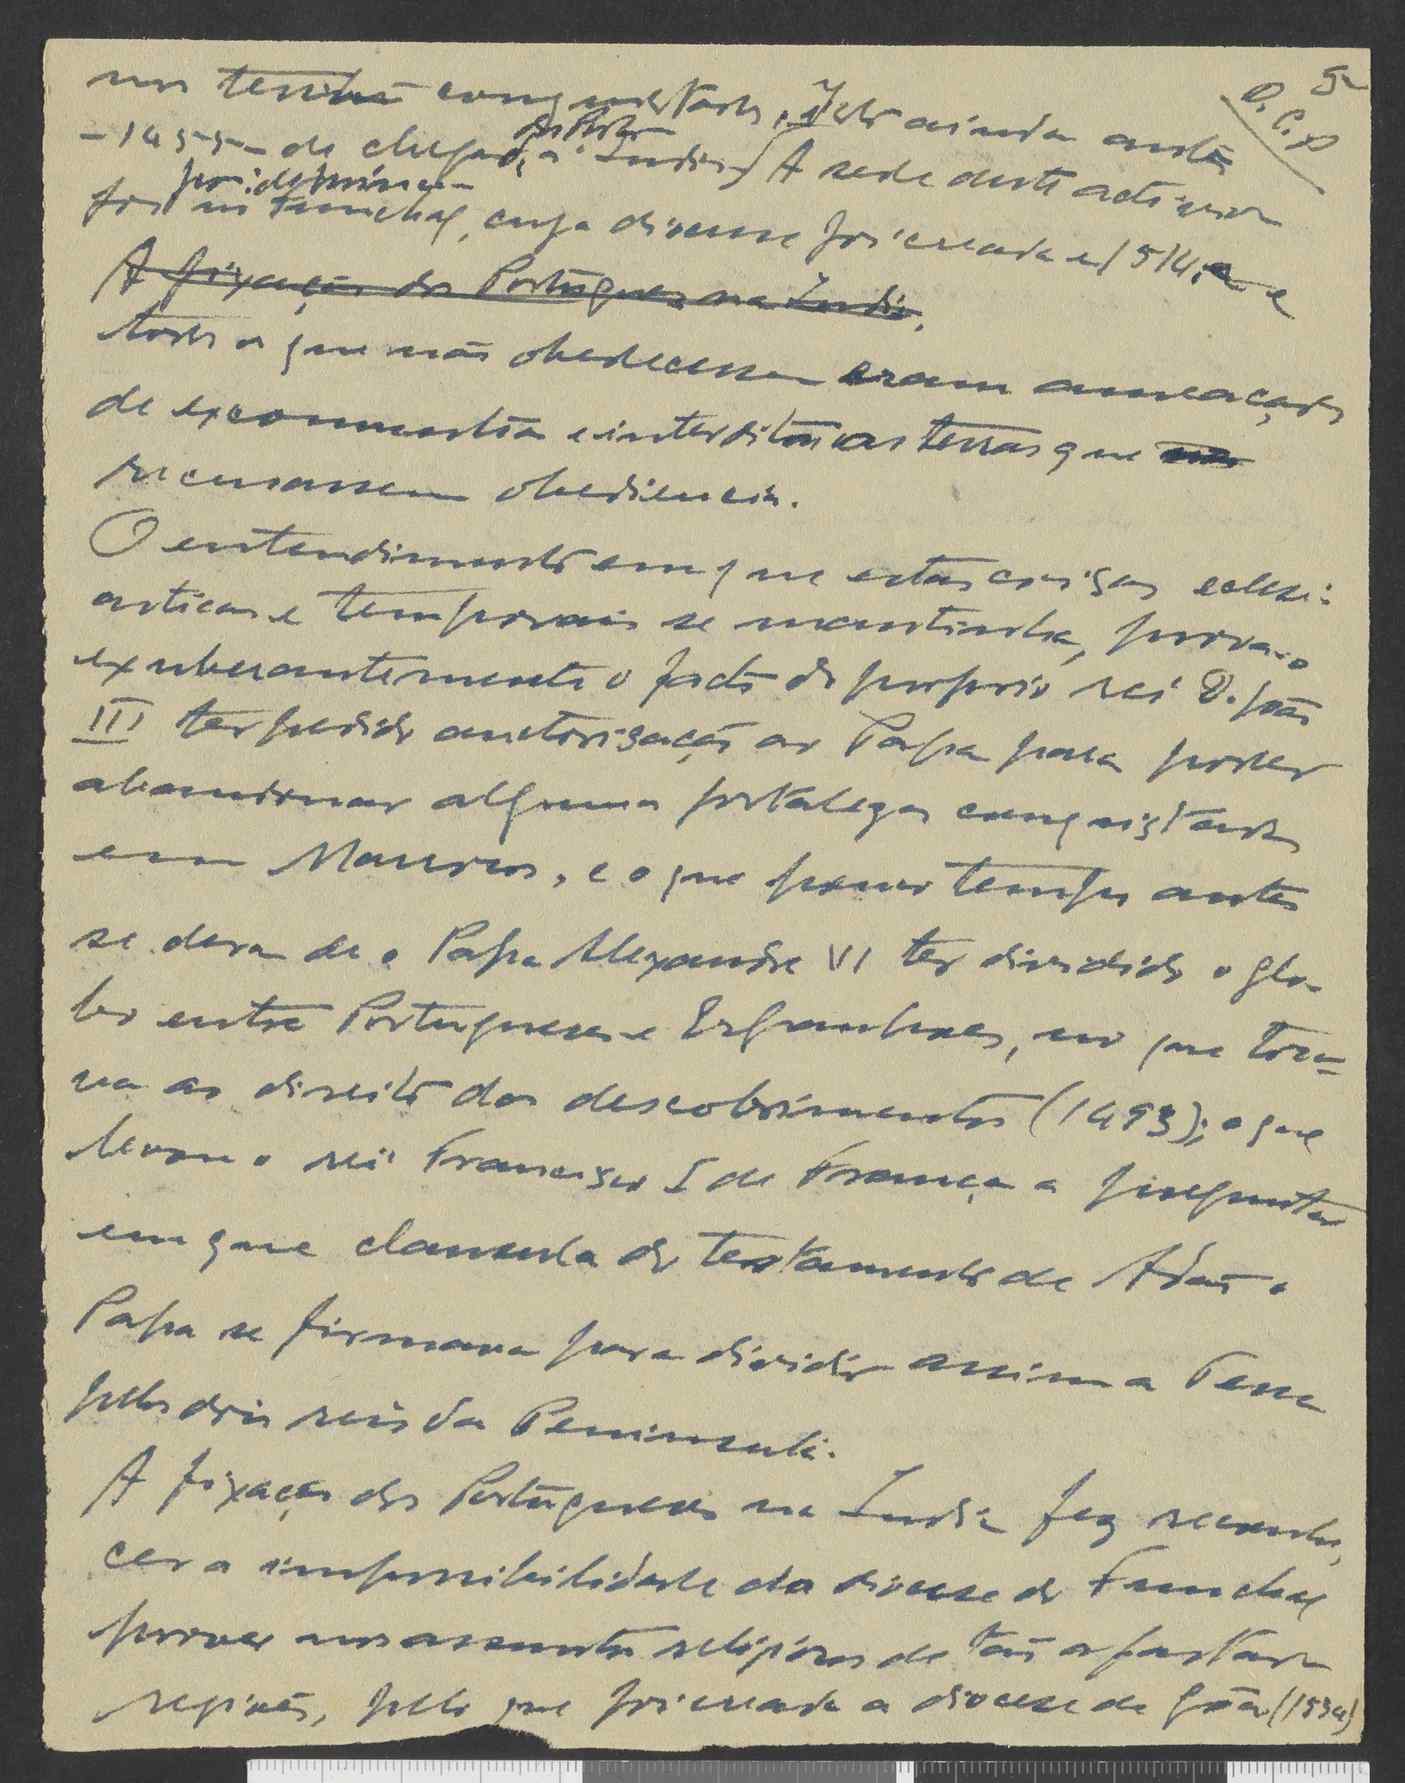 5
nos tenha conquistados, Isto ainda antes
- 1455 - da chegada dos Portos á India. A sede desta
foi principio no Funchal, cuja diocese foi creada em 1514, e
A fixação dos Portuguezes na India,
todos os que não obedecessem eram ameaçados
de excomunhão e interditas as terras que
recusassem obediencia.
O entendimento em que estas coisas eclesi-
asticas e temporais se mantinha, prova-o
exuberantemente o facto do proprio rei D. João
III ter pedido auctorisação ao Papa para poder
abandonar algumas fortalezas conquistadas
em Marrocos, e o que pouco tempo antes
se dera de o Papa Alexandre VI ter dividido o glo-
bo entre Portuguezes e Espanhoes, no que toca-
va ao direito dos descobrimentos (1493); o que
levou o rei Francisco I de França a preguntar
em que clausula do testamento de Adão o
Papa se firmava para dividir assim a Terra
pelos dois reis da Peninsula.
A fixação dos Portuguezes na India fez reconhe-
cer a impossibilidade da diocese do Funchal
prover nos assuntos religiosos de tão afastada
região, pelo que foi creada a diocese de Gôa (1534)